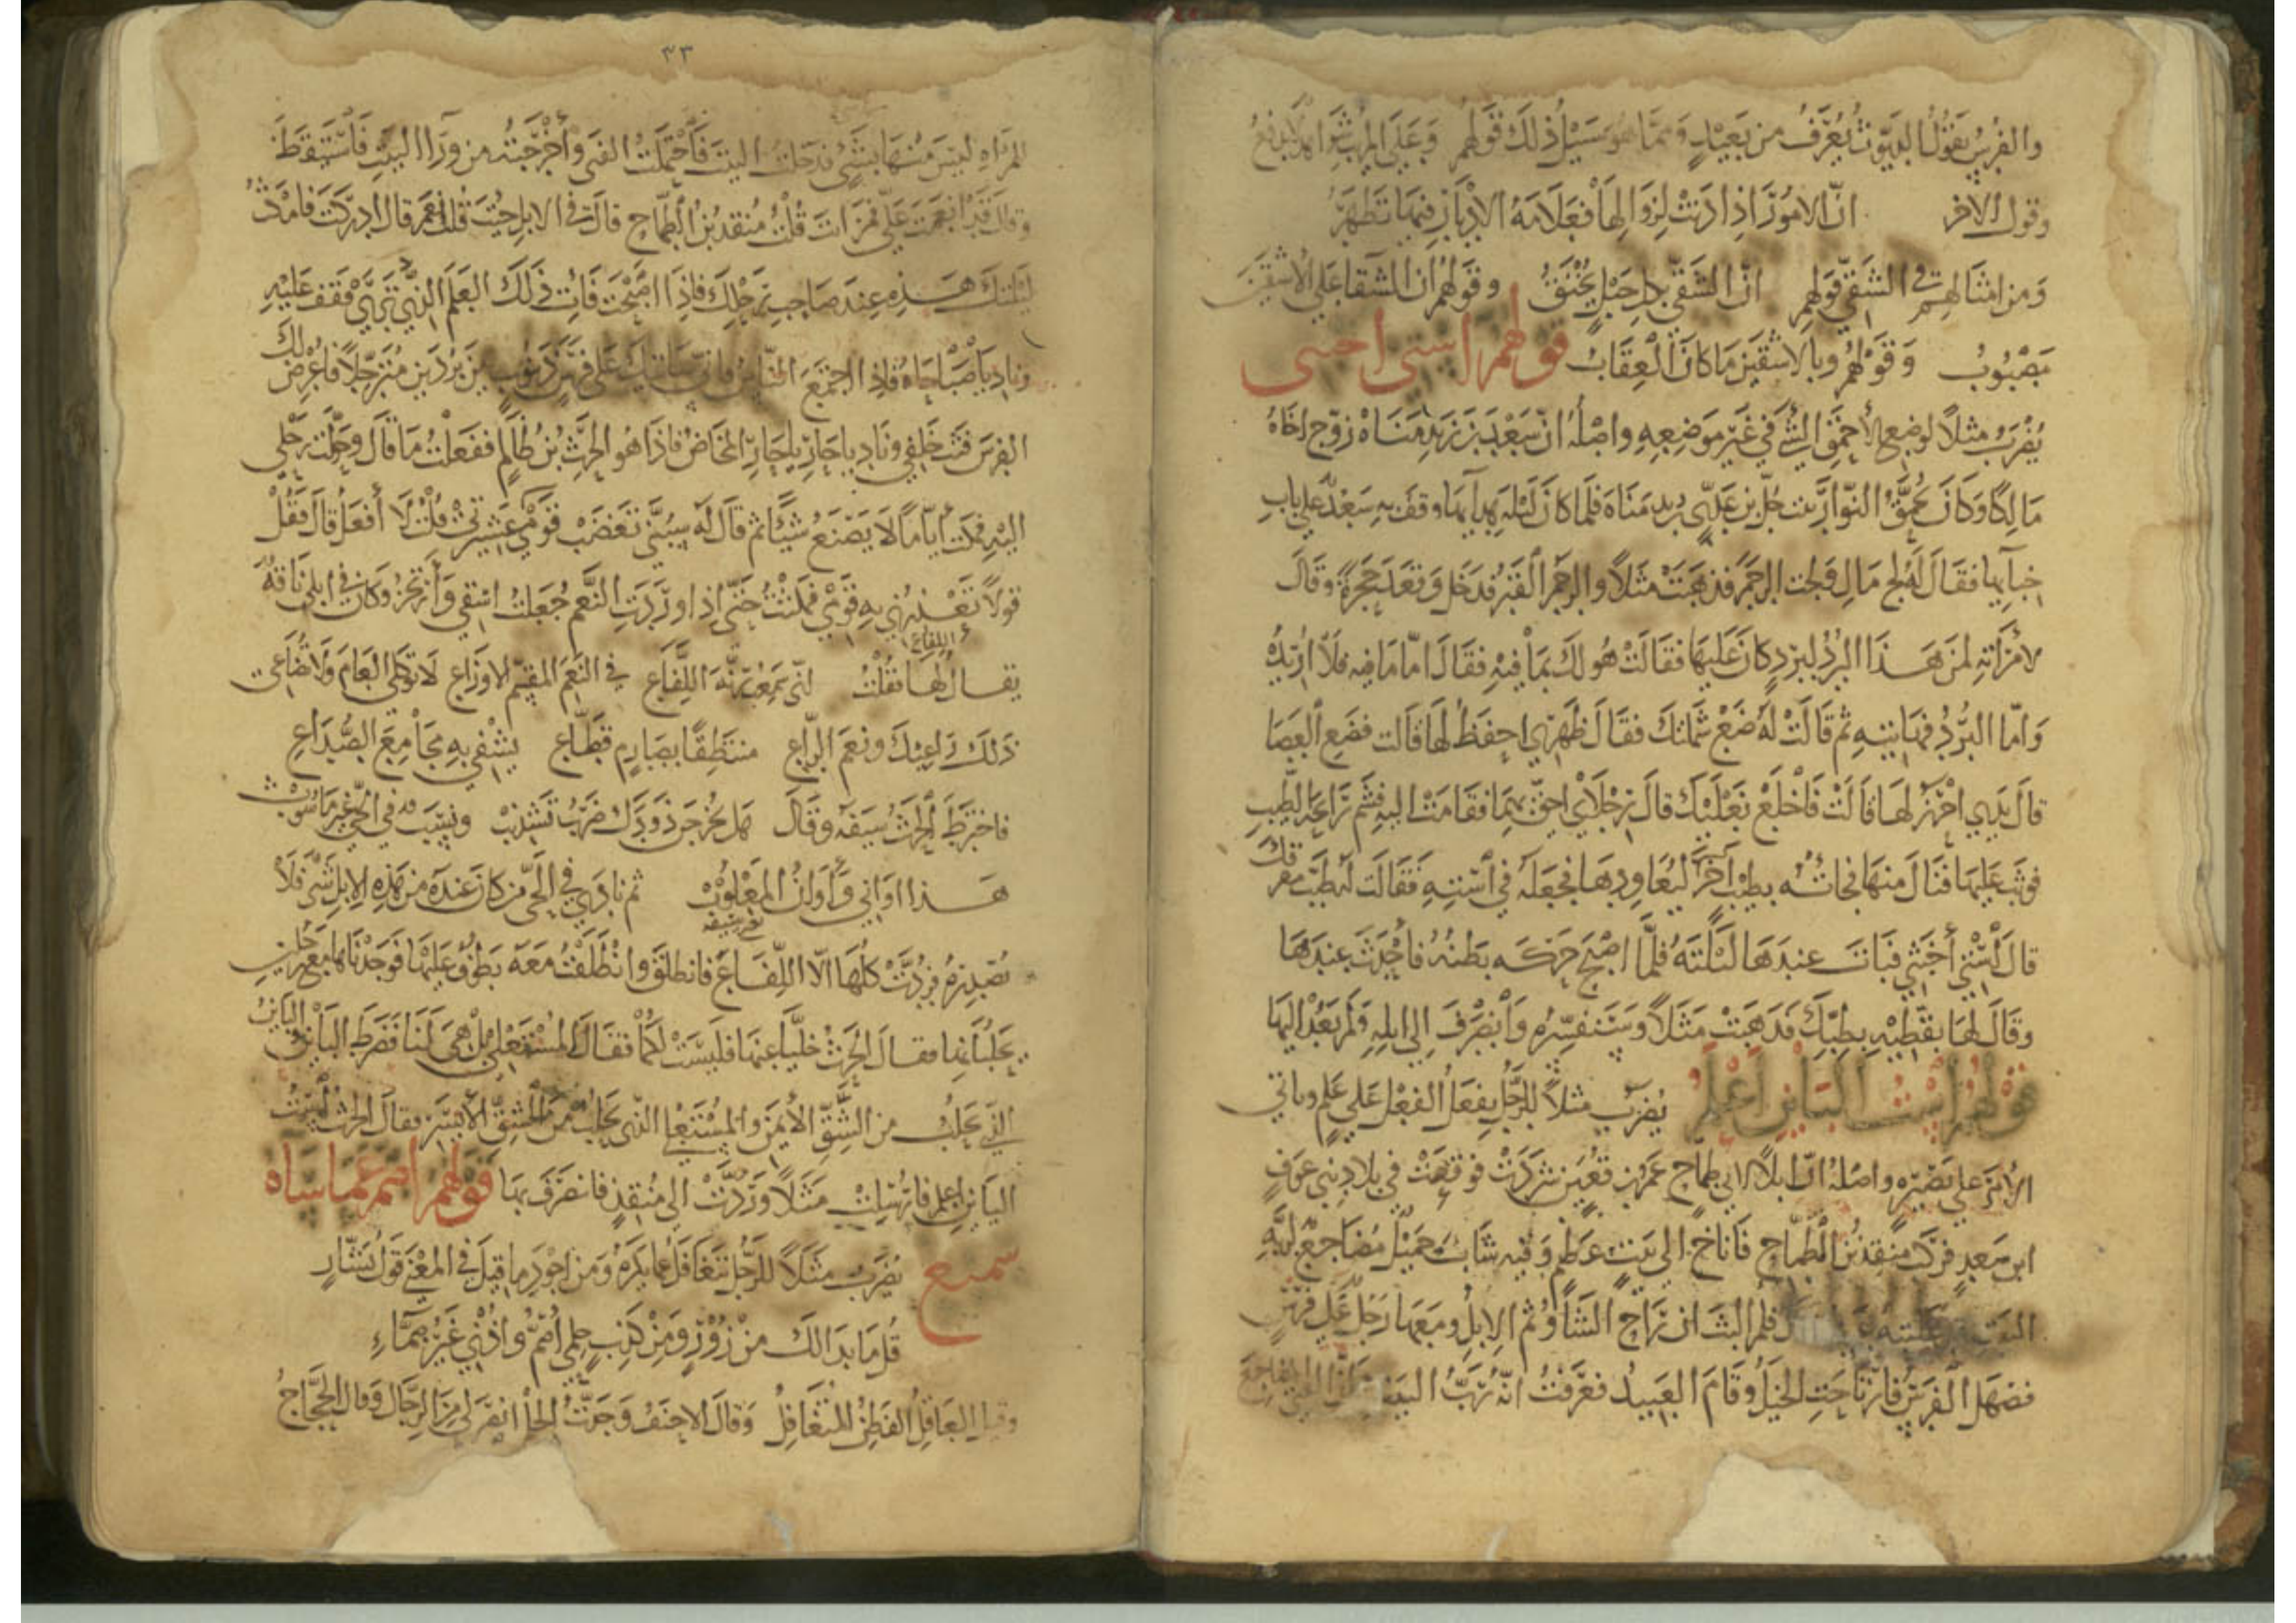 والفرس يقول البيوت يعرف من بعيد ومما هو سبيل ذلك قولهم وعلى المرشوا هلا يدفع
وقول الاخر ان الامور اذا دنت لزوالها فعلامة الادبار فيها تظهر
ومن امثالهم في الشقي قولهم ان الشقي بكل حبل يختنق وقولهم ان الشقا على الاشقين
مصبوب وقولهم وبالاشقين ما كان العقاب قولهم استي اخبثى
يضرب مثلا لوضع الاحمق الشي في غير موضعه واصله ان سعد بن زيد مناة زوج اخاه
مالكا وكان يحمق النوار بنت جل بن عدي بن زيد مناة فلما كان ليلة هدائها وقف به سعد على باب
خبائها فقال له لج مال ولجت الرجم فذهبت مثلا والرجم القبر فدخل وقعد حجرة وقال
لامراته لمن هذا البرد لبرد كان عليها فقالت هو لك بما فيه فقال اما ما فيه فلا اريده
واما البرد فهاتيه ثم قالت له ضع شملتك فقال ظهري احفظ لها قالت فضع العصا
قال يدي احرز لها قالت فاخلع نعليك قال رجلاي احق بهما فقامت اليه فشم رائحة الطيب
فوثب عليها فنال منها فجائته بطيب اخر ليعاودها فجعله في استه فقالت له طيب مفرقك
قال استي أخبثي فبات عندها ليلته فلما اصبح حركه بطنه فاحدث عندها
وقال لها بقطيه بطبك فذهبت مثلا وسنفسره وانصرف الى ابله ولم يعد اليها
قولهم است البائن اعلم يضرب مثلا للرجل يفعل الفعل على علم وياتي
الامر على بصيره واصله ان ابلا لابي طماح عمرو بن قعين شردت فوقعت في بلاد بني عوف
ابن سعد فركب منقذ بن الطماح فاناخ الى بيت عظيم وفيه شاب جميل مضاجع لربة
البيت فلم البث ان راح الشاء ثم الابل ومعها رجل على فرس
فصهل الفرس فارتاحت الخيل وقام العبيد فعرفت انه رب البيت
٣٣
المراه ليس منها بشي فدخلت البيت فاحتملت الفتى وأخرجته من وراء البيت فاستيقظ
وقال قد انعمت علي فمن انت قلت منقذ بن الطماح قال في الابل جئت قلت نعم قال ادركت فامكث
ليلتك هذه عند صاحب رحلك فاذا اصبحت فات ذلك العلم الذي ترى فقف عليه
وناد يا صباحاه فاذا اجتمع الناس فاني ساتيك على فرس ذنوب بين بردين متبرجلا فاعرض لك
الفرس فثب خلفي وناد يا حار يا حار المخاض فاذا هو الحرث بن ظالم ففعلت ما قال وحولت رحلي
اليه فمكث أياما لا يصنع شيئا ثم قال له سبني تغضب قومي عشيرتي قلت لا أفعل قال فقل
قولا تعذرني به قومي فمكثت حتى اذا اوردت النعم جعلت اسقي وأرتجز وكان في ابلي ناقة
يقال لها اللفاع فقلت اني سمعت رنة اللفاع في النعم المقسم الاوزاع لا توكلي العام ولا تضاعي
ذلك راعيك ونعم الراع منتطقا بصارم قطاع يشفي به مجامع الصداع
فاخترط الحرث سيفه وقال هل يخرجن ذودك ضرب تشذيب ونسب في الحي غير ماشوب
هذا اواني وأوان المعلوب ثم نادى في الحي من كان عنده من هذه الابل شي فلا
يعني سيفه
يصدرن فردت كلها الا اللفاع فانطلق وانطلقت معه يطوف عليها فوجدناها مع رجلين
يحلبانها فقال الحرث خليا عنها فليست لكما فقال المستعلي بل هي لنا فضرط البائن البائن
الذي يحلب من الشق الأيمن والمستعلي الذي يحلب من الشق الأيسر فقال الحرث است
البائن اعلم فارسلت مثلا وردت الى منقذ فانصرف بها قولهم اصم عما ساه
سميع يضرب مثلا للرجل يتغافل عما يكره ومن اجود ما قيل في المعنى قول بشار
قل ما بدا لك من زور ومن كذب حلمي أصم وأذني غير صماء
وقيل العاقل الفطن المتغافل وقال الاحنف وجدت الحلم انصر لي من الرجال وقال الحجاج